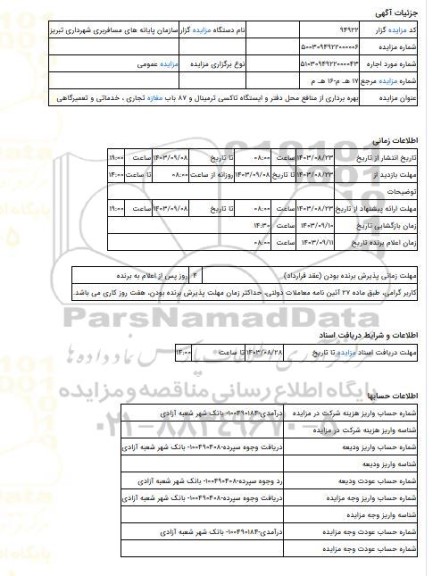 جزئیات آگهی
کد مزایده گزار ۹۴۹۲۲ نام دستگاه مزایده گزار سازمان پایانه های مسافربری شهرداری تبریز
شماره مزایده ۵۰۰۳۰۹۴۹۲۲۰۰۰۰۰۶
شماره مورد اجاره ۵۱۰۳۰۹۴۹۲۲۰۰۰۰۴۳ نوع برگزاری مزایده مزایده عمومی
شماره مزایده مرجع ۱۷ هـ م-۱۶ هـ م
عنوان مزایده بهره برداری از منافع محل دفتر و ایستگاه تاکسی ترمینال و ۸۷ باب مغازه تجاری ، خدماتی و تعمیرگاهی
اطلاعات زمانی
تاریخ انتشار از تاریخ ۱۴۰۳/۰۸/۲۳ ساعت ۰۸:۰۰ تا تاریخ ۱۴۰۳/۰۹/۰۸ ساعت ۱۹:۰۰
مهلت بازدید از ۱۴۰۳/۰۸/۲۳ تا تاریخ ۱۴۰۳/۰۹/۰۸ روزانه از ساعت ۰۸:۰۰ تا ساعت ۱۴:۰۰
توضیحات
مهلت ارائه پیشنهاد از تاریخ ۱۴۰۳/۰۸/۲۳ ساعت ۰۸:۰۰ تا تاریخ ۱۴۰۳/۰۹/۰۸ ساعت ۱۹:۰۰
زمان بازگشایی تاریخ ۱۴۰۳/۰۹/۱۰ ساعت ۱۴:۳۰
زمان اعلام برنده تاریخ ۱۴۰۳/۰۹/۱۱ ساعت ۰۸:۰۰
مهلت زمانی پذیرش برنده بودن (عقد قرارداد) ۴ روز پس از اعلام به برنده
کاربر گرامی، طبق ماده ۲۷ آئین نامه معاملات دولتی، حداکثر زمان مهلت پذیرش برنده بودن، هفت روز کاری می باشد.
ParsNamadData
اطلاعات و شرایط دریافت اسناد
مهلت دریافت اسناد مزایده تا تاریخ ۱۴۰۳/۰۸/۲۸ تا ساعت ۱۴:۰۰
پایگاه اطلاع رسانی مناقصه و مزایده
اطلاعات حسابها
شماره حساب واریز هزینه شرکت در مزایده درآمدی-۱۰۰۴۹۰۱۸۴- بانک شهر شعبه آزادی
شناسه واریز هزینه شرکت در مزایده
۰۲۱-۸۸۳۴۹۶۷۰-۵
شماره حساب واریز ودیعه دریافت وجوه سپرده-۱۰۰۴۹۰۴۰۸- بانک شهر شعبه آزادی
شناسه واریز ودیعه
شماره حساب عودت ودیعه رد وجوه سپرده-۱۰۰۴۹۰۴۰۸- بانک شهر شعبه آزادی
شماره حساب واریز وجه مزایده دریافت وجوه سپرده-۱۰۰۴۹۰۴۰۸- بانک شهر شعبه آزادی
شناسه واریز وجه مزایده
شماره حساب عودت وجه مزایده درآمدی-۱۰۰۴۹۰۱۸۴- بانک شهر شعبه آزادی
شماره حساب عودت وجه مزایده